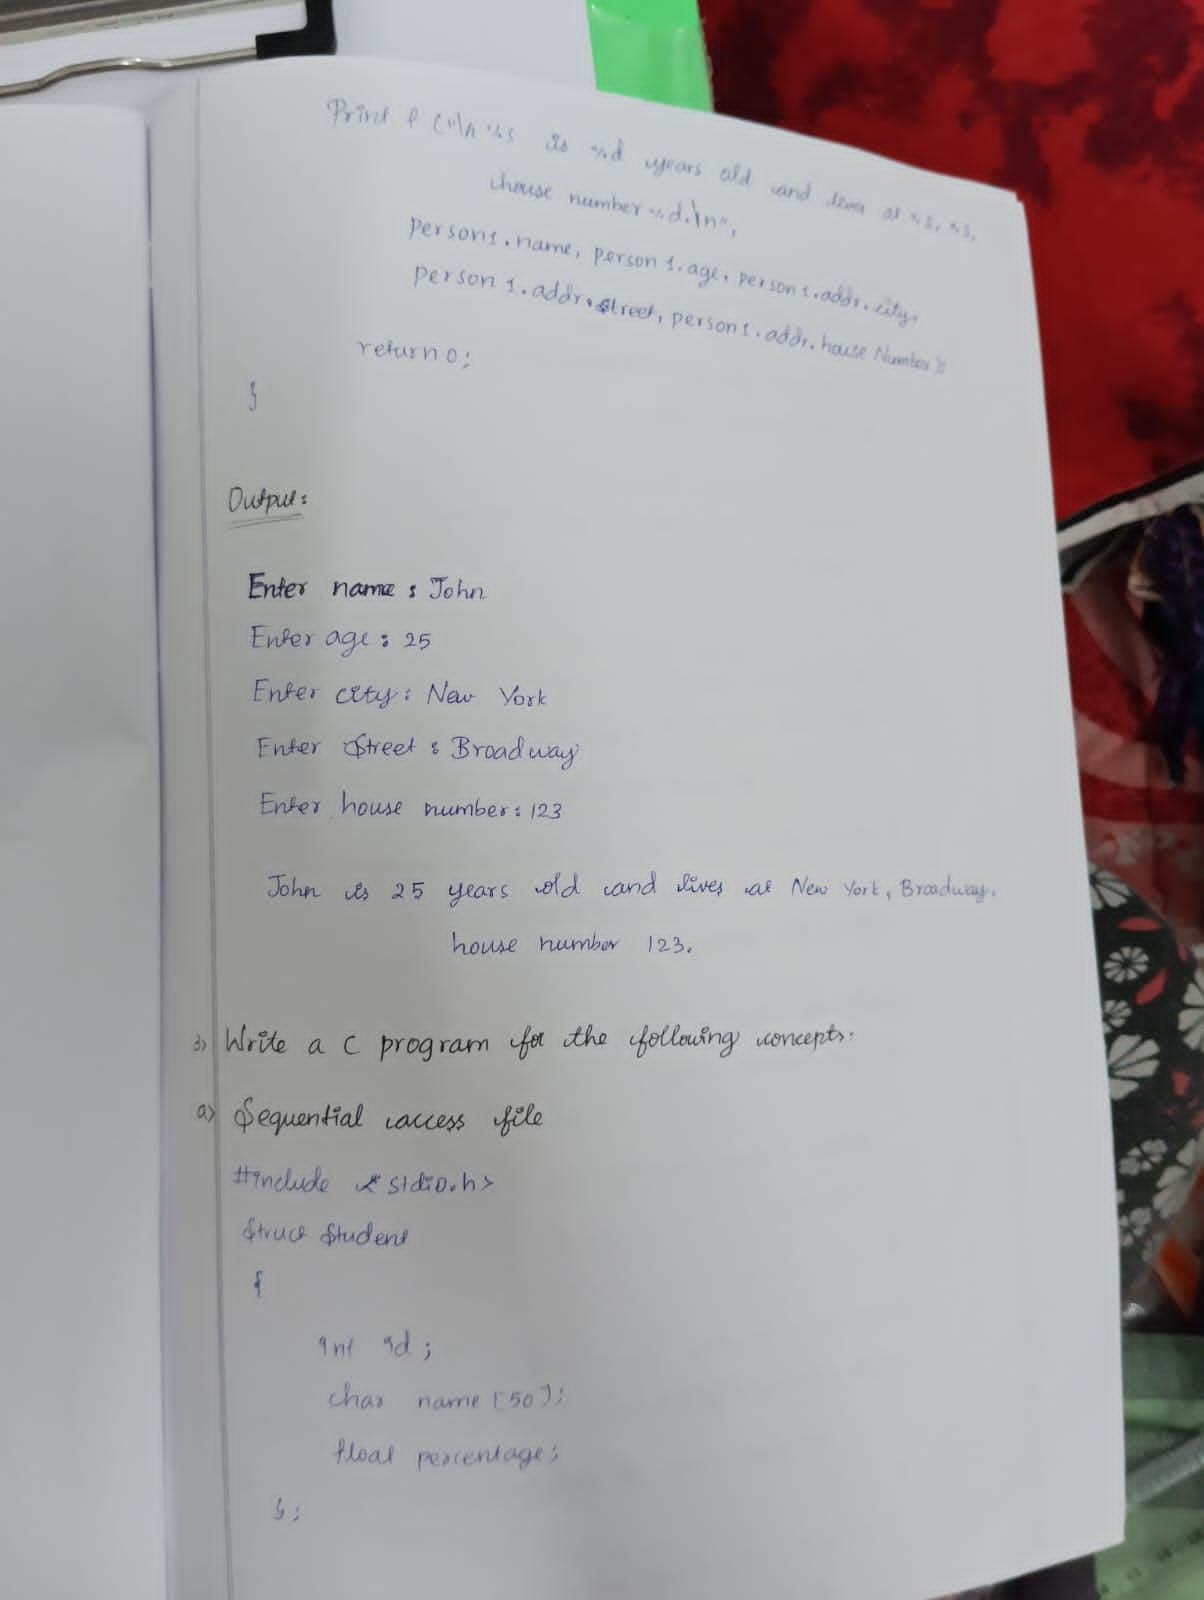 Print f ("\n %s is %d years old and lives at %s, %s,
house number %d.\n",
person1.name, person 1.age, person1.addr.city,
person 1.addr.street, person1.addr.house Number);
return 0;
}
Output:
Enter name : John
Enter age : 25
Enter city : New York
Enter Street : Broadway
Enter house number : 123
John is 25 years old and lives at New York, Broadway,
house number 123.
3) Write a C program for the following concepts.
a) Sequential access file
#include <stdio.h>
Struct Student
{
int id ;
char name [50];
float percentage;
};